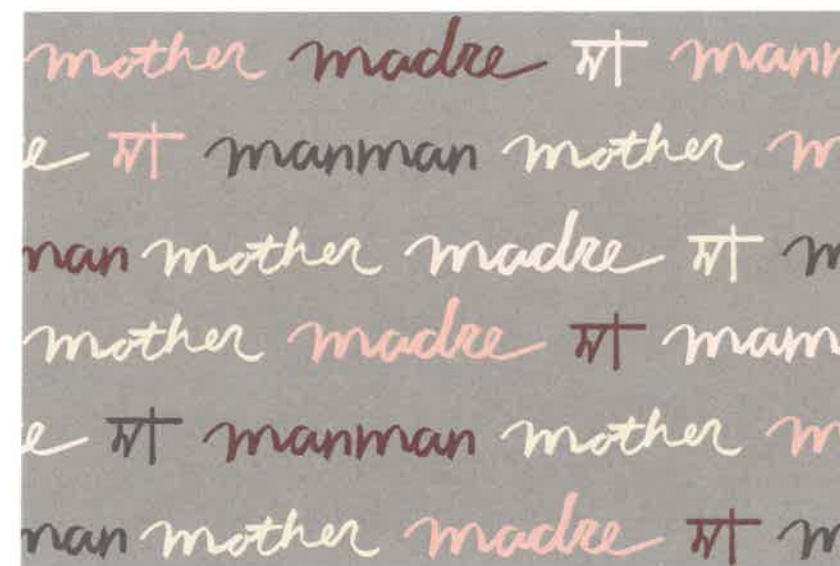 mother madre মা manm
e মা manman mother m
man mother madre মা m
mother madre মা manm
e মা manman mother m
man mother madre মা m